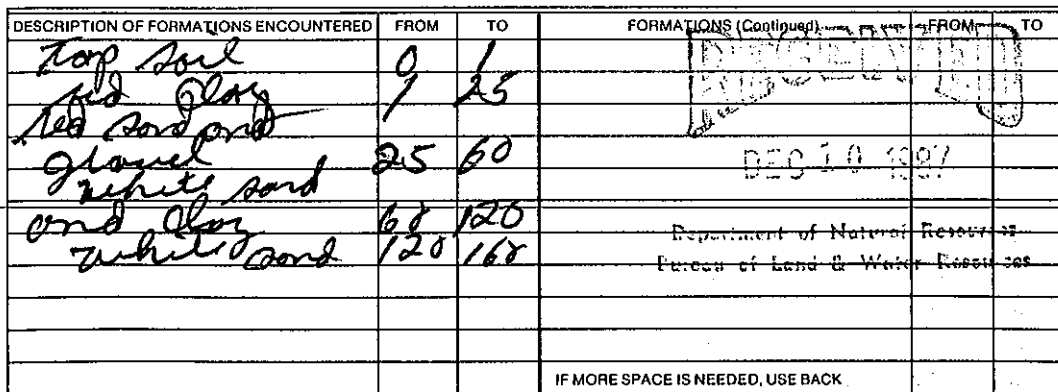 DESCRIPTION OF FORMATIONS ENCOUNTERED FROM TO FORMATIONS (Continued) FROM TO
Top Soil 0 1
red Clay 1 25
red sand and
gravel 25 60
white sand
and Clay 60 120
white sand 120 168
RECEIVED
DEC 10 1997
Department of Natural Resources
Bureau of Land & Water Resources
IF MORE SPACE IS NEEDED, USE BACK